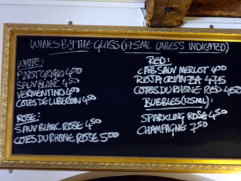 WINES BY THE GLASS (175ML UNLESS INDICATED)
WHITE:
PINOT GRIGIO 400
SAUV BLANC 450
VERMENTINO 400
COTES DE LUBERON 450
ROSE:
SAUV BLANC ROSE 450
COTES DU RHONE ROSE 500
RED:
CAB SAUV MERLOT 400
RIOJA CRIANZA 475
COTES DU RHONE RED 450
BUBBLES (125ML):
SPARKLING ROSE 450
CHAMPAGNE 750